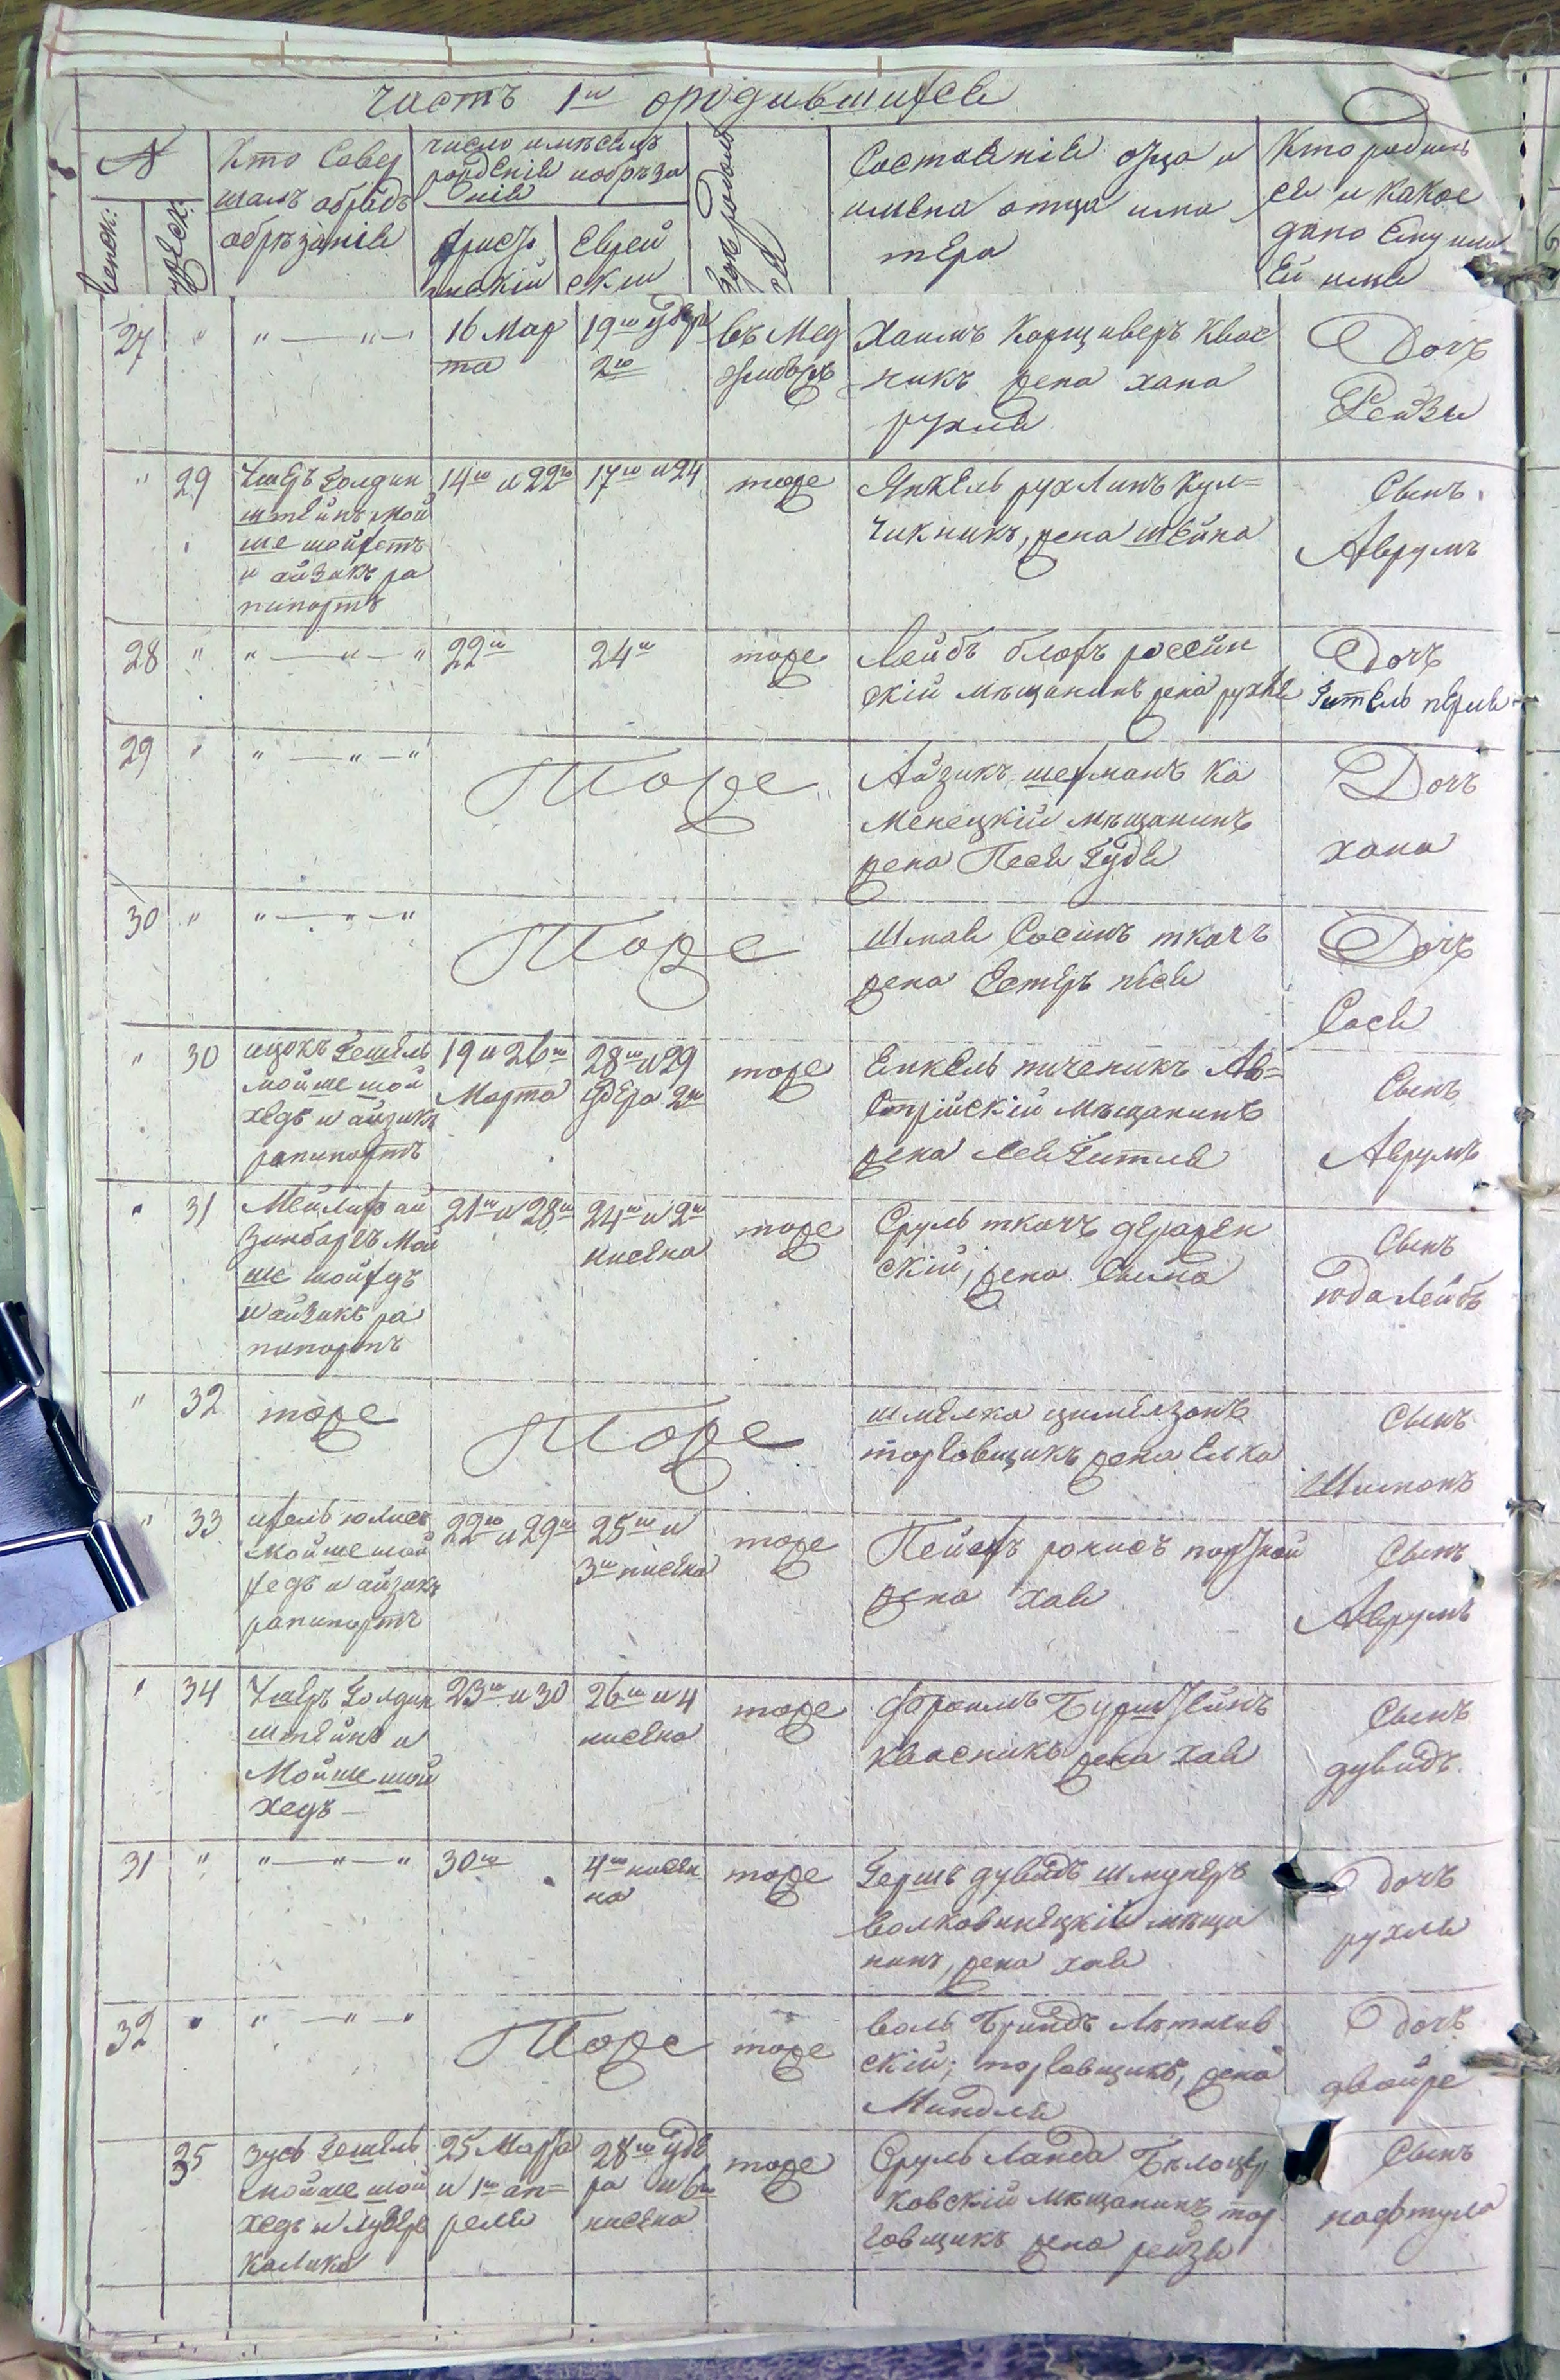 часть 1я ородившихся
N
Кто Совер
шалъ обрядъ
обрѣзанія
число имѣсяцъ
рожденія иобрѣза
нія
Христі
анскій
Еврей
скій
Состоянія отца и
имена отца има
тера
Кто родил
ся и какое
дано Ему или
Ей имя
27 " " — " — 16 Мар
та
19го удера
2го
въ Мед
жибожѣ
Хаимъ Корщиверъ Квас
никъ жена хана
рухля
Дочъ
Рейзя
" 29 Ушеръ Голдин
штейнъ мой
ше шойхетъ
и айзикъ ра
пипортъ
14го и 22го 17го и 24 тоже
Янкель рухлинъ Кул=
чикникъ, жена шейна
Сынъ
Аврумъ
28 " " — " — " 22го 24го тоже
Лейбъ блохъ россій
скій мѣщанинъ жена рухля
Дочъ
Гитель перля
29 " " — " — " Тоже
Айзикъ шехманъ Ка
менецкій мѣщанинъ
жена Песя Гудя
Дочъ
хана
30 " " — " — " Тоже
Шмая Сосинъ ткачъ
жена Естеръ песя
Дочъ
Сося
" 30 ицокъ Гешель
мойше шой
хедъ и айзикъ
рапипортъ
19 и 26го
Марта
28го и 29
удера 2го
тоже
Енкель пиченикъ Ав=
стрійскій мѣщанинъ
жена Лея Гитля
Сынъ
Аврумъ
" 31 Мейлих ай
зинбаргъ Мой
ше шойхдъ
и айзикъ ра
пипортъ
21го и 28го 24го и 2го
нисена
тоже
Сруль ткачъ деражен
скій, жена Сима
Сынъ
юда Лейбъ
" 32 тоже Тоже
шмелка цимелзонъ
торговщикъ жена Елка
Сынъ
Шимонъ
" 33 ихель юлисъ
мойше шой
хедъ и айзикъ
рапипортъ
22го и 29го 25го и
3го нисена
тоже
Пейсехъ ронисъ портной
жена хая
Сынъ
Аврумъ
" 34 Ушеръ Голдин
штейнъ и
Мойше шой
хедъ —
23го и 30 26го и 4
нисена
тоже
Фроимъ Бурштейнъ
квасникъ жена хая
Сынъ
дувидъ
31 " " — " — " 30го 4го нисен
на
тоже
Гершъ дувидъ шмунеръ
волковинецкій мѣща
нинъ, жена хая
дочъ
рухля
32 " " — " — " Тоже тоже
воль Бриндъ Лѣтичив
скій; торговщикъ, жена
Миндля
дочъ
двойре
35 зусь Гешель
мойше шой
хедъ и Лузеръ
калика
25 Марта
и 1го ап=
реля
28го уде
ра и 6го
нисена
тоже
Сруль Ланда Бѣлоцер
ковскій мѣщанинъ тор
говщикъ жена рейзя
Сынъ
нафтула